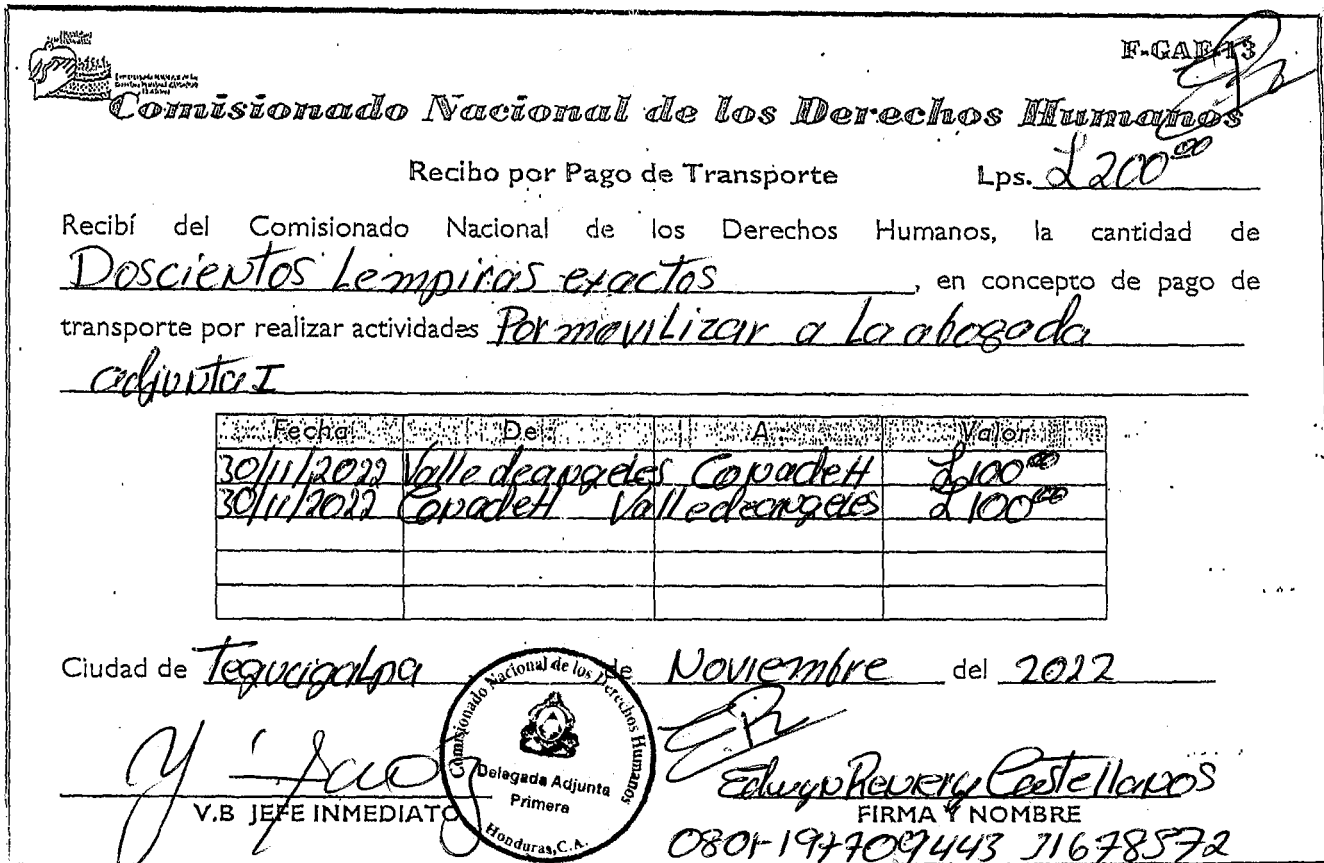 F-GAF-13
Comisionado Nacional de los Derechos Humanos
Recibo por Pago de Transporte Lps. L 200.00
Recibí del Comisionado Nacional de los Derechos Humanos, la cantidad de
Doscientos Lempiras exactos, en concepto de pago de
transporte por realizar actividades Por moviLizar a La abogada
adjunta I
Fecha De A Valor
30/11/2022 Valle de angeles ConadeH L 100.00
30/11/2022 ConadeH Valle de angeles L 100.00
Ciudad de Tegucigalpa de Noviembre del 2022
Comisionado Nacional de los Derechos Humanos
Delegada Adjunta
Primera
Honduras, C.A.
Castellanos
V.B JEFE INMEDIATO FIRMA Y NOMBRE
31678572